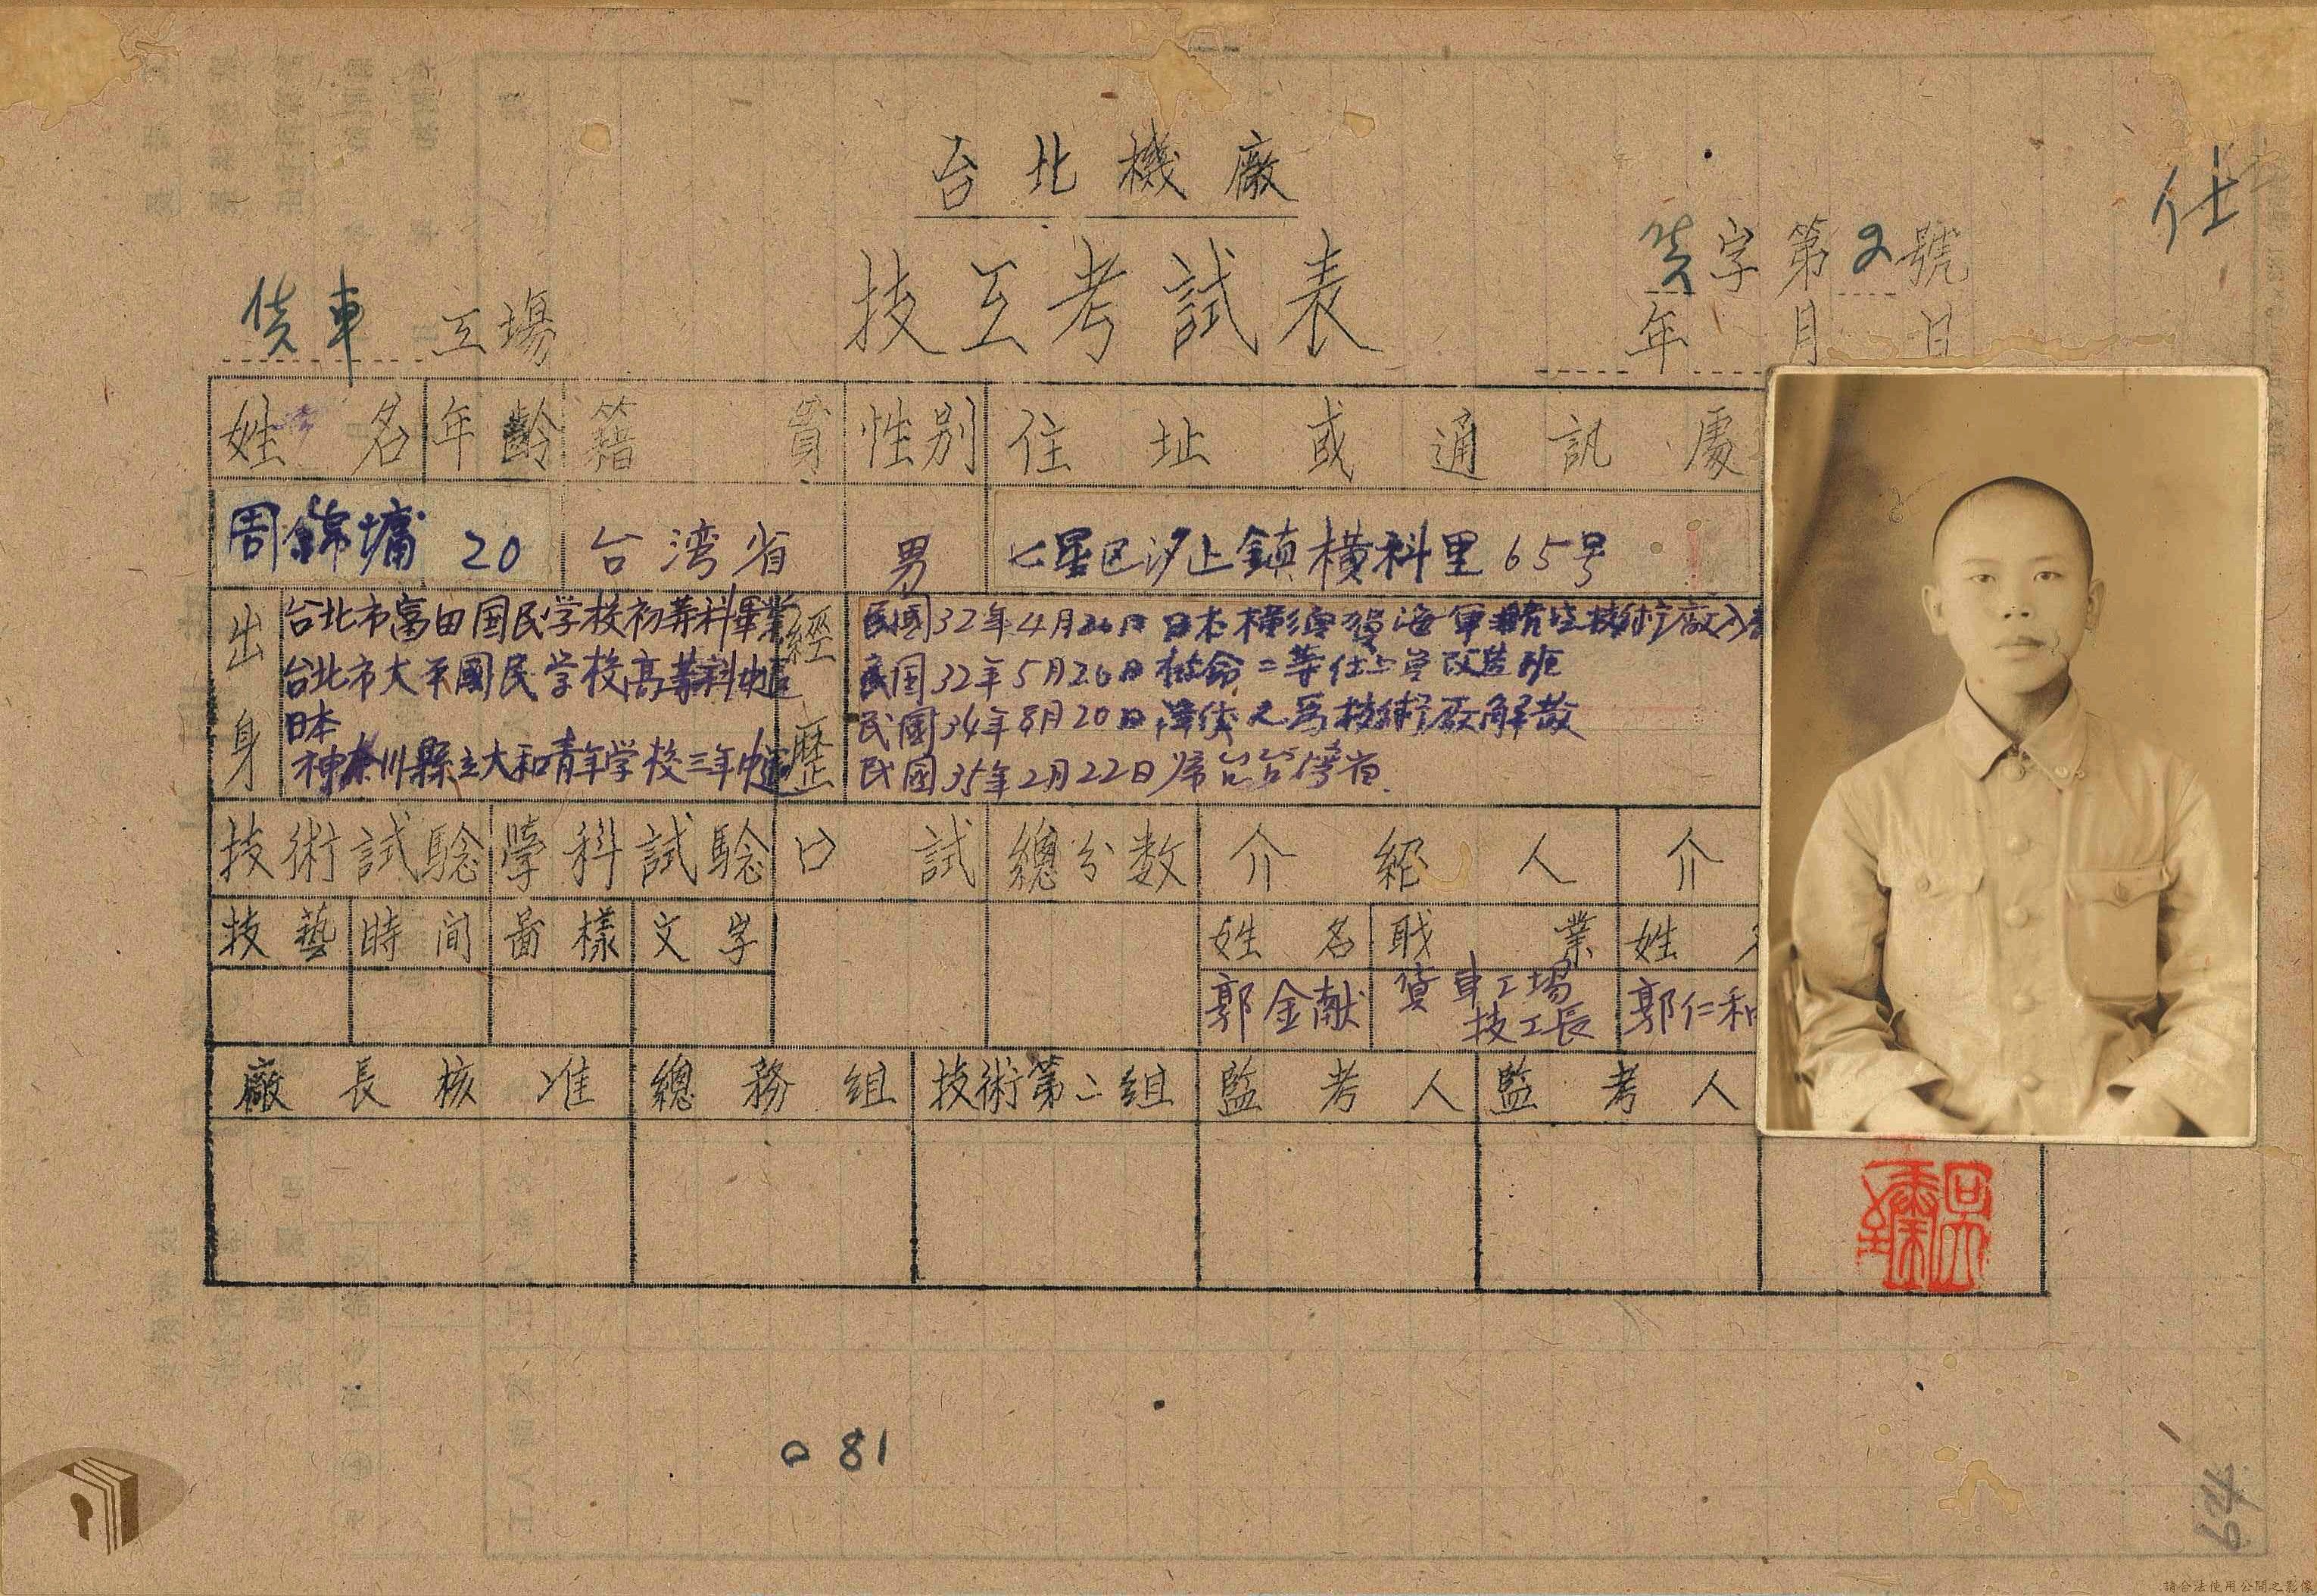 台北機廠
技工考試表
仕
貨字第2號
年 月 日
貨車工場
姓名 年齡 籍貫 性別 住址或通訊處
周錦墉 20 台湾省 男 七星区汐止鎮橫科里65号
出身
台北市富田国民学校初等科畢業
台北市大平國民学校高等科中退
日本
神奈川縣立大和青年学校三年中退
經歷
民國32年4月26日 日本橫須賀海軍航空技術廠入
民国32年5月26日
民國34年8月20日 技術廠解散
民國35年2月22日歸台台灣省.
技術試驗 學科試驗 口試 總分数 介紹人 介
技藝 時间 啚樣 文字 姓名 職業 姓
郭金献 貨車工場 技工長 郭仁和
廠長核准 總務組 技術第二組 監考人 監考人
081
64
請合法使用公開之影像